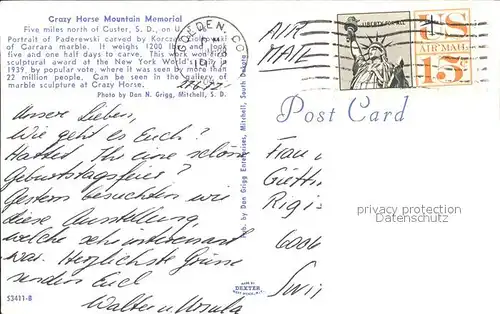 Crazy Horse Mountain Memorial
Five miles north of Custer, S. D., on U.
Portrait of Paderewski carved by Korczak Ziolkowski
of Carrara marble. It weighs 1200 lbs. and took
five and one half days to carve. This work won first
sculptural award at the New York World's Fair in
1939, by popular vote it was seen by more than
22 million people. Can be seen in the gallery of
marble sculpture at Crazy Horse.
Photo by Dan N. Grigg, Mitchell, S. D.
27.6.77.
Unsere Lieben,
Wie geht es Euch?
Hattet Ihr eine schöne
Geburtstagsfeier?
Gestern besuchten wir
diese Ausstellung,
welche sehr interessant
war. Herzlichste Grüsse
senden Euch
Walter u. Ursula
53411-B
Pub. by Dan Grigg Enterprises, Mitchell, South Dakota
MADE BY
DEXTER
WEST NYACK, N.Y.
GOLDEN, CO
AIR
MAIL
LIBERTY FOR ALL
US
AIR MAIL
15¢
Post Card
Frau
Rigis
6006
privacy protection
Datenschutz